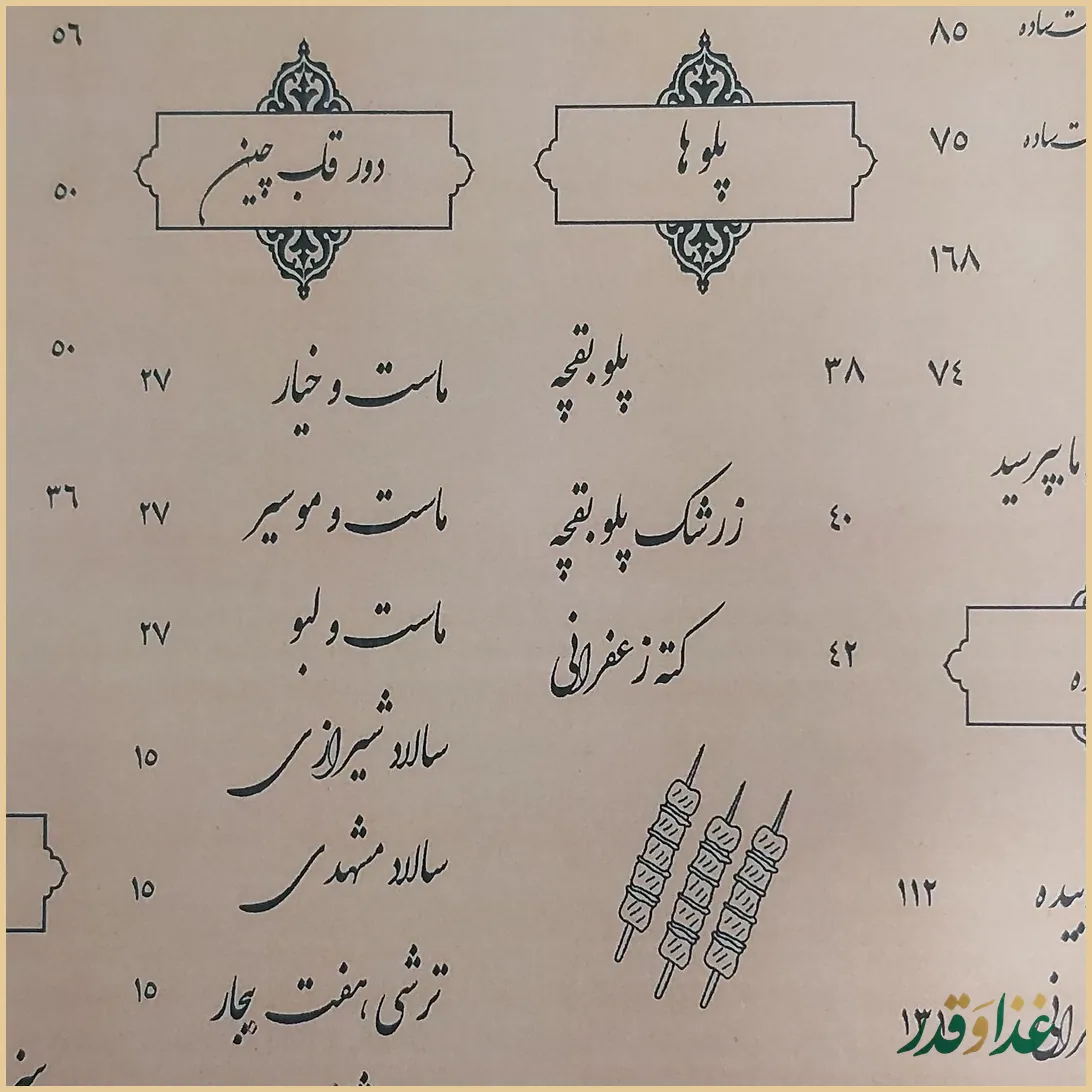 ت ساده ۸۵
ت ساده ۷۵
۱۶۸
۷٤
ما بپرسید
۱۱۲
پلو ها
پلو بقچه ۳۸
زرشک پلو بقچه ٤۰
کته زعفرانی ٤۲
دور قاب چین
ماست و خیار ۲۷
ماست و موسیر ۲۷
ماست و لبو ۲۷
سالاد شیرازی ۱٥
سالاد مشهدی ۱٥
ترشی هفت بیجار ۱٥
٥٦
٥۰
٥۰
۳٦
غذا و قدر